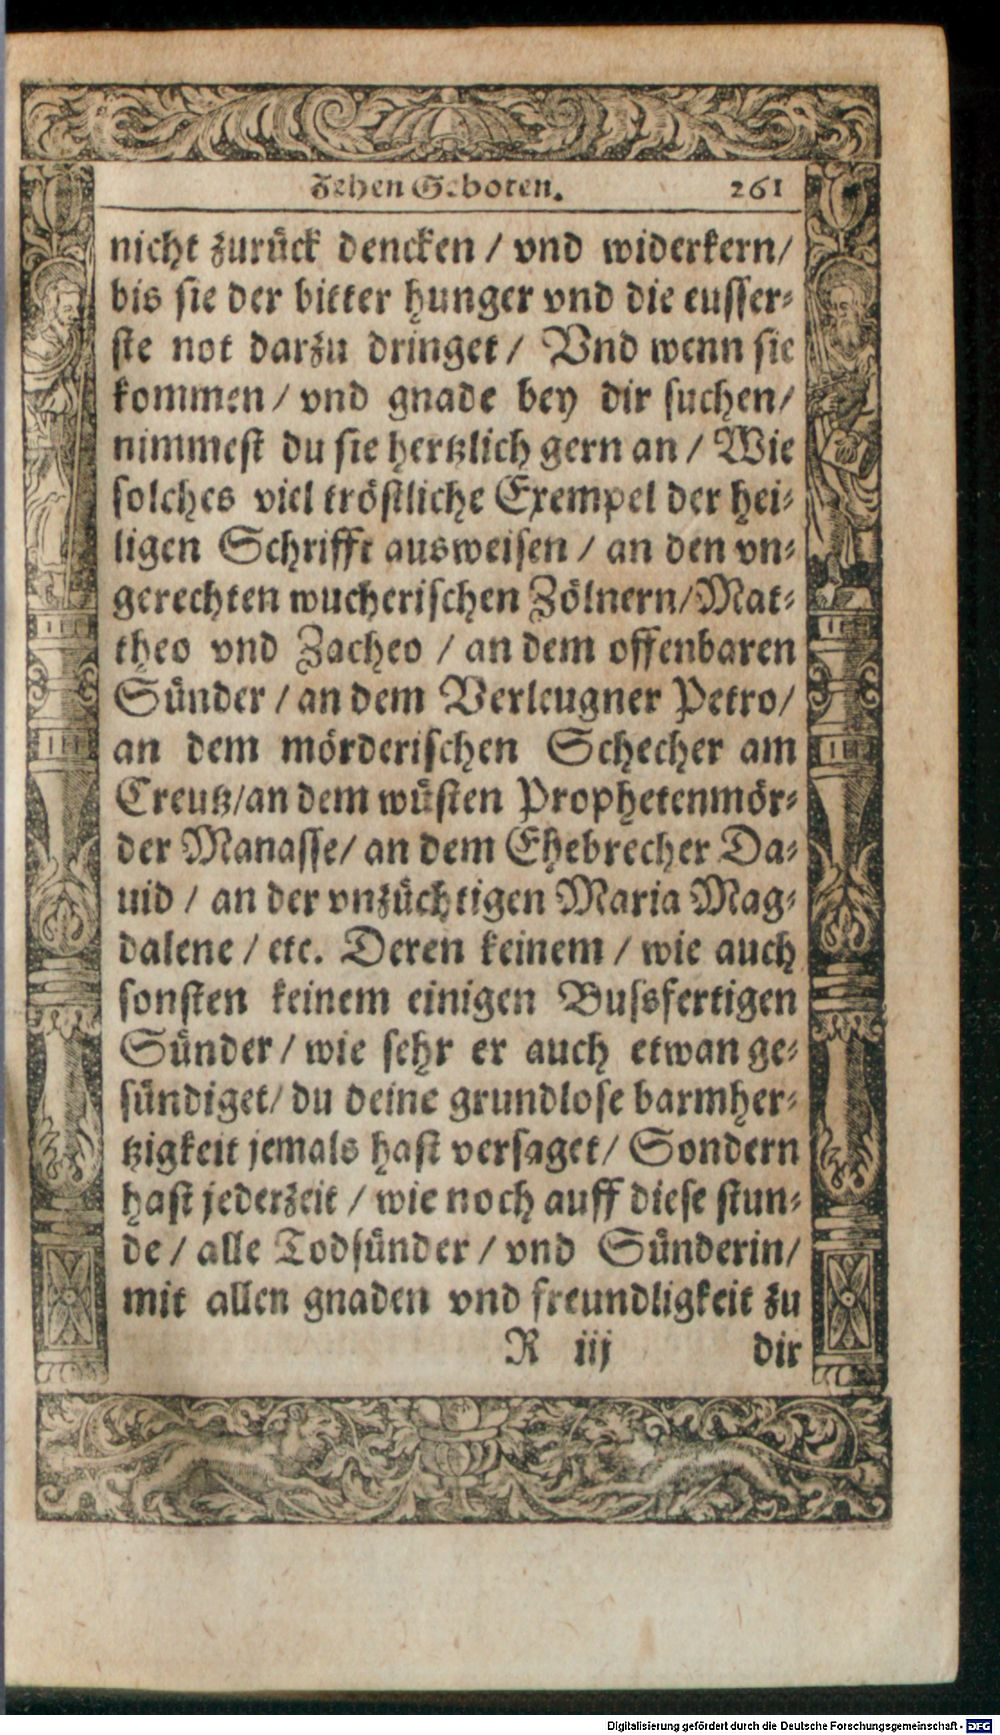 Zehen Geboten. 261
nicht zurück dencken / vnd widerkern/
bis sie der bitter hunger vnd die eusser-
ste not darzu dringet / Vnd wenn sie
kommen / vnd gnade bey dir suchen/
nimmest du sie hertzlich gern an / Wie
solches viel tröstliche Exempel der hei-
ligen Schrifft ausweisen / an den vn-
gerechten wucherischen Zölnern/Mat-
theo vnd Zacheo / an dem offenbaren
Sünder / an dem Verleugner Petro/
an dem mörderischen Schecher am
Creutz/an dem wüsten Prophetenmör-
der Manasse/ an dem Ehebrecher Da-
uid / an der vnzüchtigen Maria Mag-
dalene / etc. Deren keinem / wie auch
sonsten keinem einigen Bussfertigen
Sünder / wie sehr er auch etwan ge-
sündiget/ du deine grundlose barmher-
tzigkeit jemals hast versaget/ Sondern
hast jederzeit / wie noch auff diese stun-
de / alle Todsünder / vnd Sünderin/
mit allen gnaden vnd freundligkeit zu
R iij dir
Digitalisierung gefördert durch die Deutsche Forschungsgemeinschaft - DFG